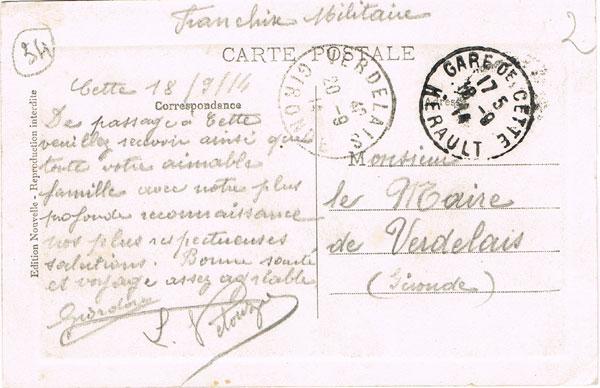 34
Franchise Militaire
2
CARTE POSTALE
Cette 18/9/14
Correspondance
De passage à Cette
veuillez recevoir ainsi que
toute votre aimable
famille avec notre plus
profonde reconnaissance
nos plus respectueuses
salutions. Bonne santé
et voyage assez agréable
Edition Nouvelle - Reproduction interdite
VERDELAIS
20-9
GIRONDE
GARE DE CETTE
17 5
18-9
14
HERAULT
Monsieur
le Maire
de Verdelais
(Gironde)